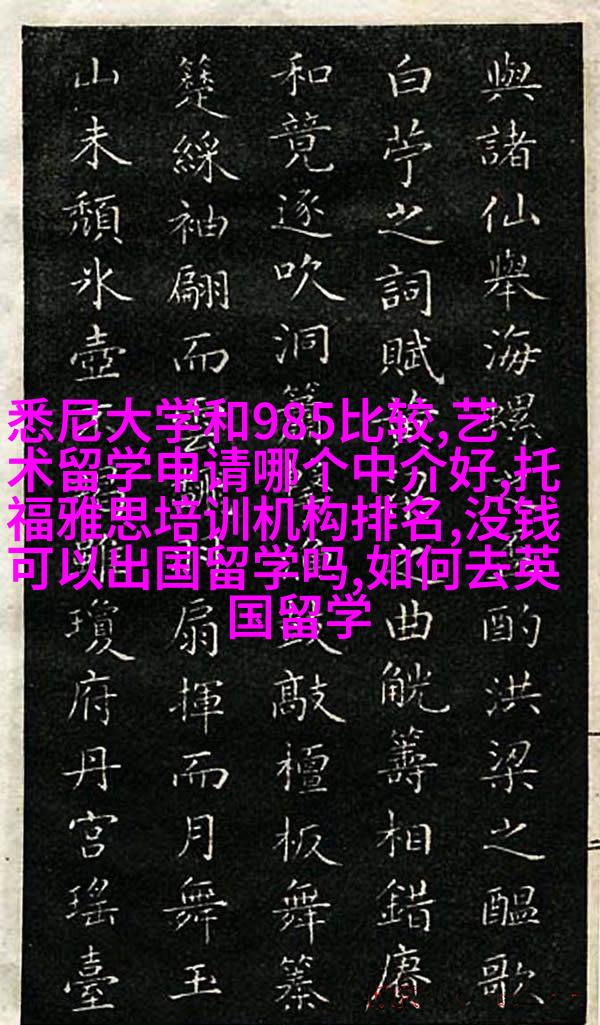 與諸仙舉海螺之酌洪梁之醞歌
白苧之詞賦曲觥籌相錯賡
和竟逐吹洞簫敲檀板舞
綵袖翩而雲扇揮而月舞玉
山未頹冰壺瓊府丹宮瑤臺
悉尼大学和985比较,艺
术留学申请哪个中介好,托
福雅思培训机构排名,没钱
可以出国留学吗,如何去英
国留学